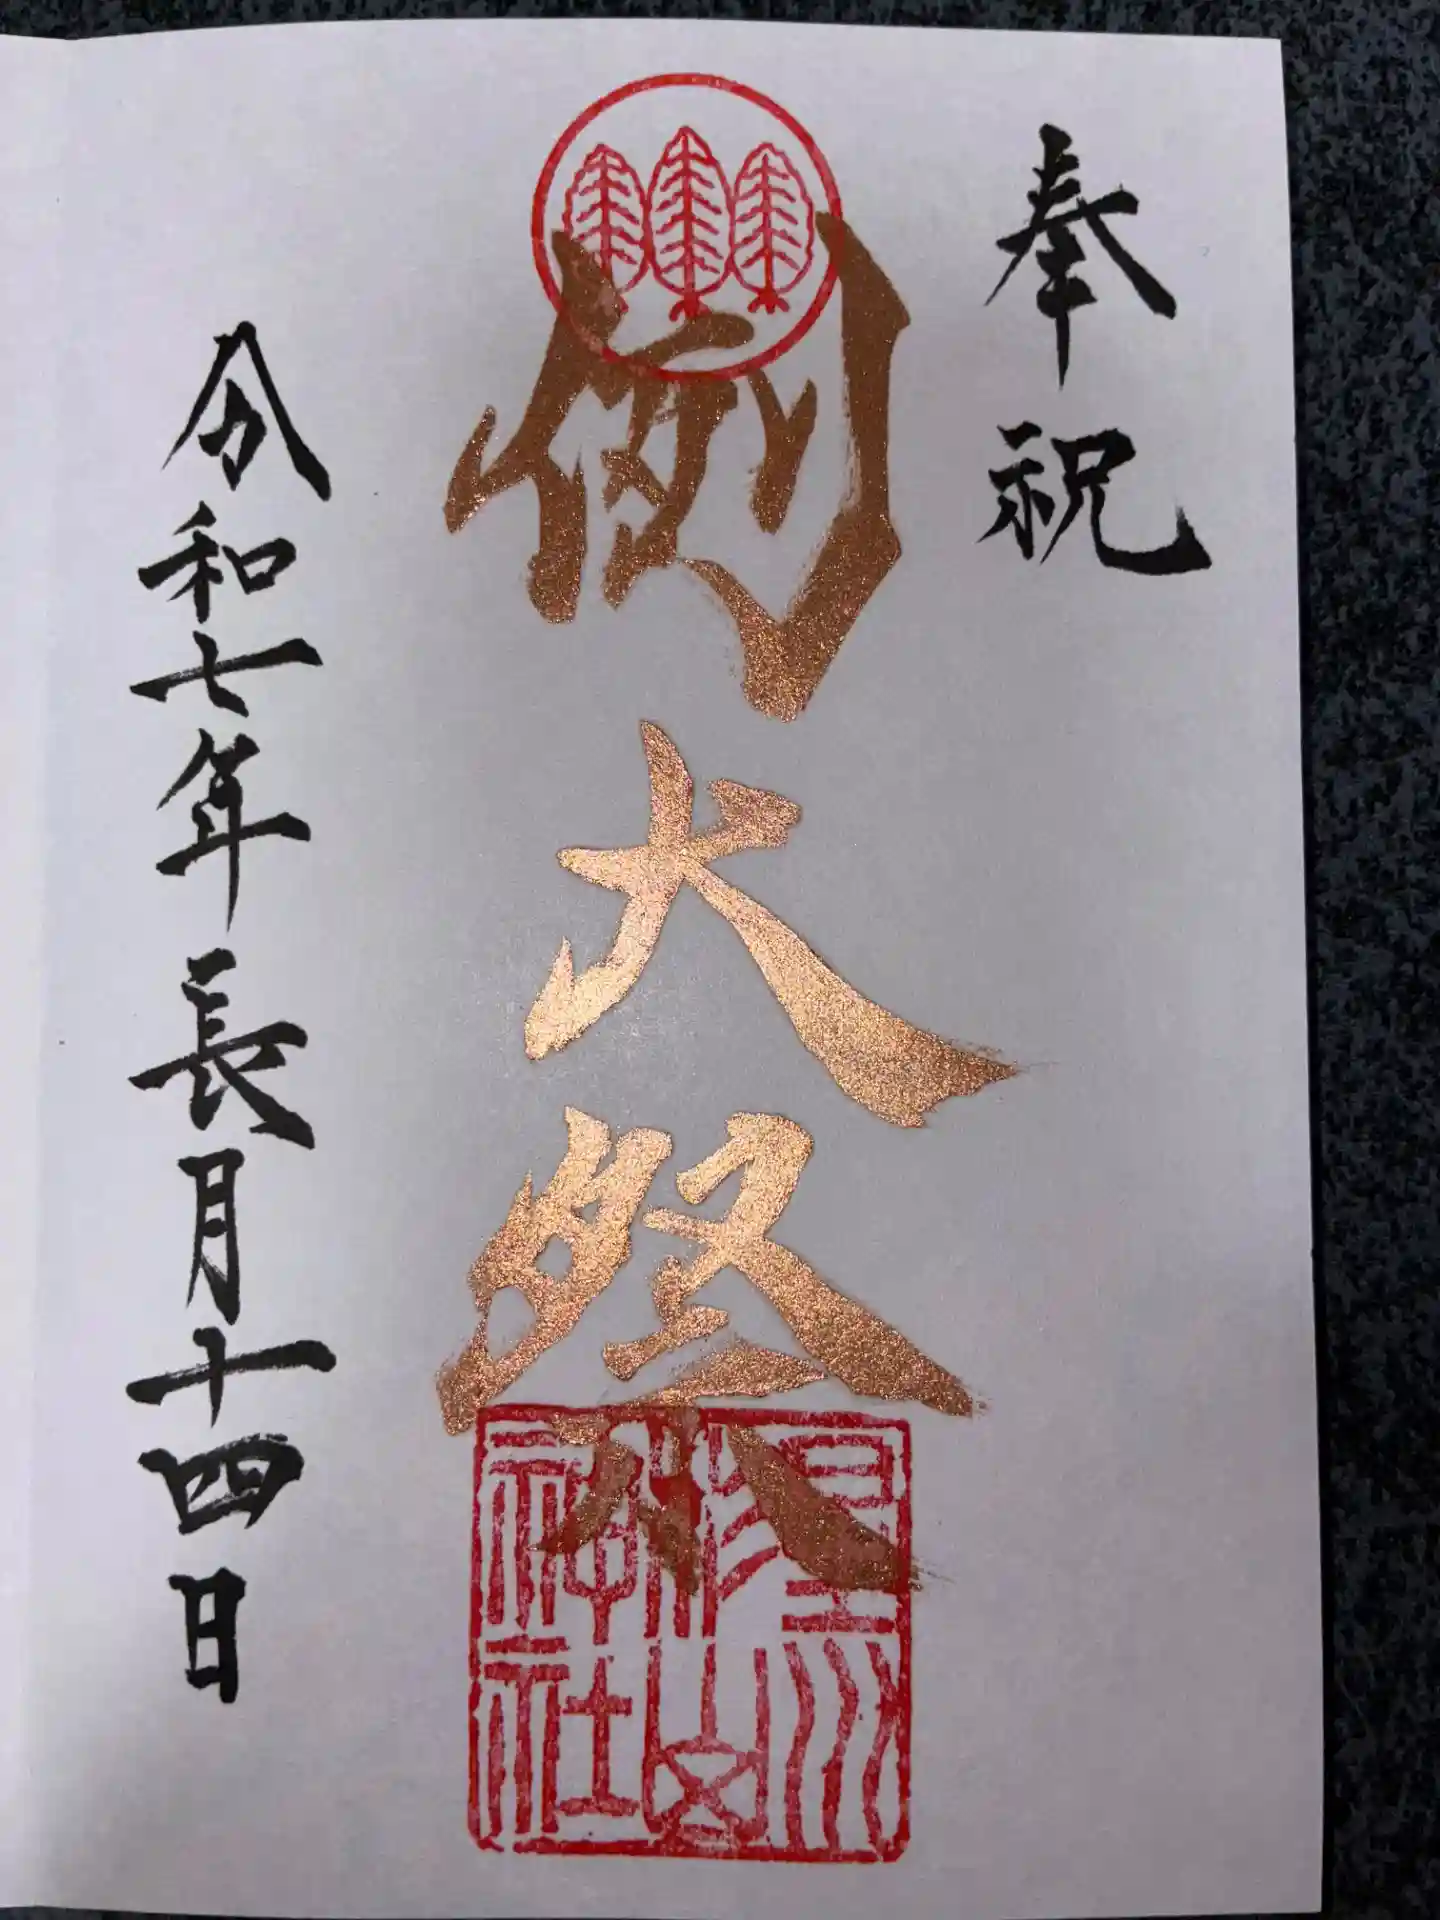 奉祝
例大祭
星川
杉山
神社
令和七年長月十四日